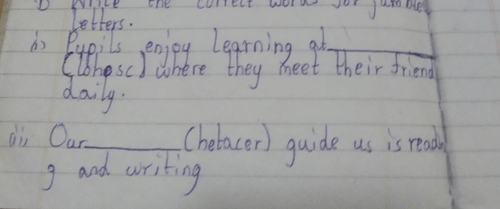 i) Write the correct words for jumble
Letters.
ii) Pupils enjoy learning at
(lohosc) where they meet their friend
daily.
iii Our (hetacer) guide us is readn
g and writing